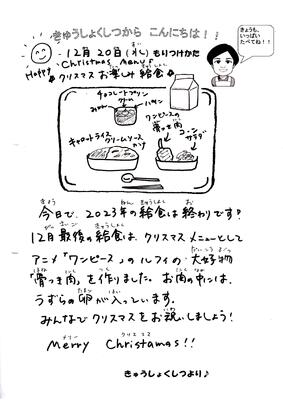 きゅうしょくしつから こんにちは!
きょうも、
いっぱい
たべてね!!
Happy
12月20日(水) もりつけかた
Christmas Menu
クリスマスお楽しみ給食
チョコレートプリン
みかん
スプーン
ワンピースの
骨つき肉
コーン
サラダ
キャロットライス
クリームソース
かけ
今日で、2023年の給食は終わりです!
12月最後の給食は、クリスマスメニューとして
アニメ「ワンピース」のルフィの大好物
「骨つき肉」を作りました。お肉の中には、
うずらの卵が入っています。
みんなでクリスマスをお祝いしましょう!
メリー クリスマス
Merry Christamas!!
きゅうしょくしつより♪